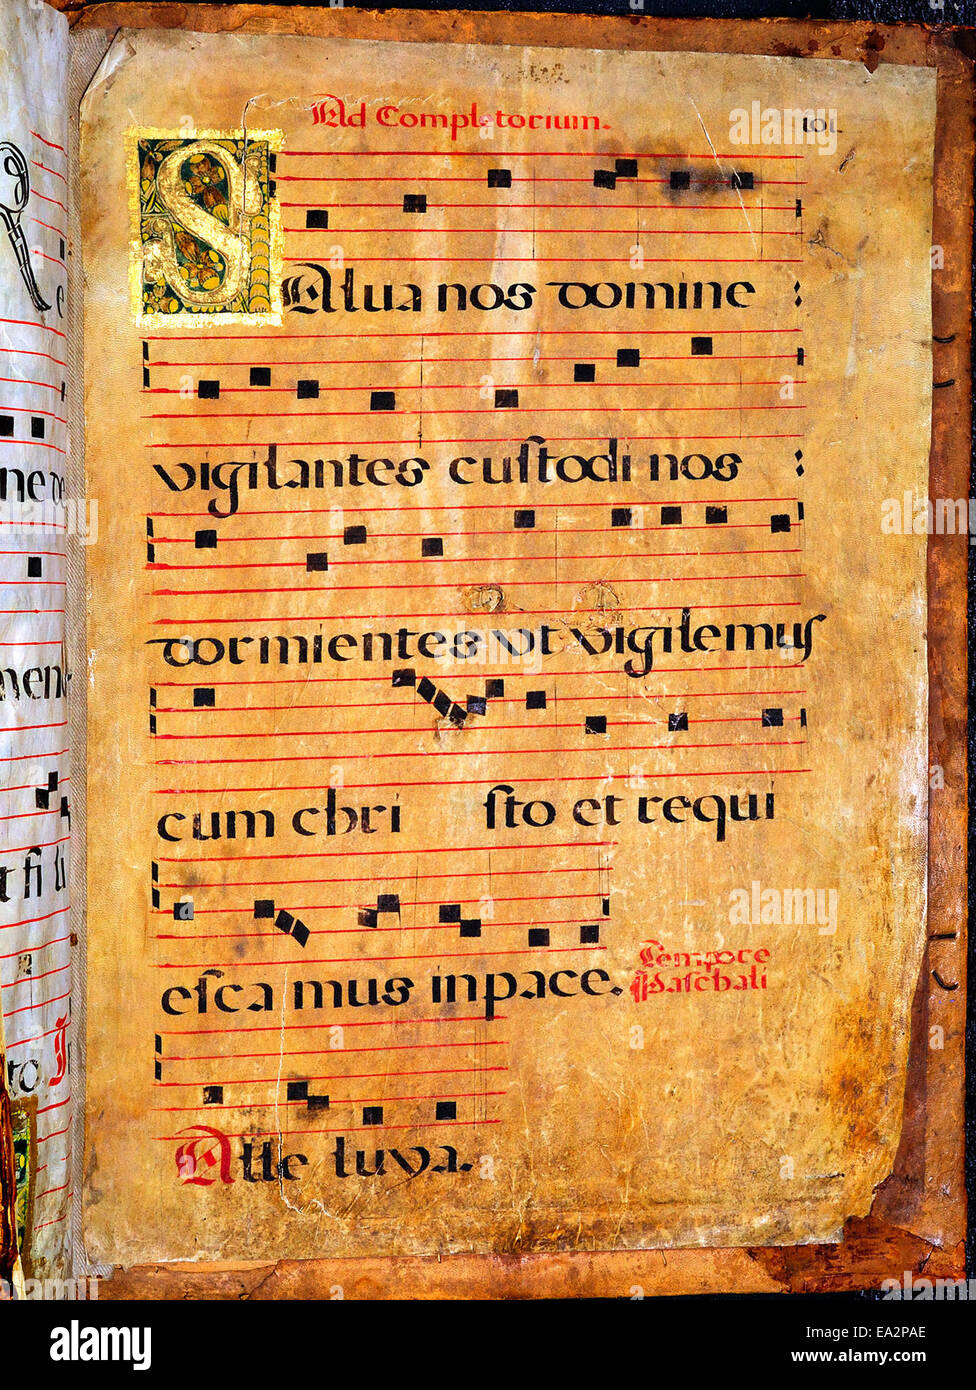 Ad Completorium.
101.
SAlua nos domine :
vigilantes custodi nos :
dormientes vt vigilemus
cum chri sto et requi
esca mus in pace.
Tempore
Paschali
Alle luya.
e
ne
to
alamy
Image ID: EA2PAE
www.alamy.com